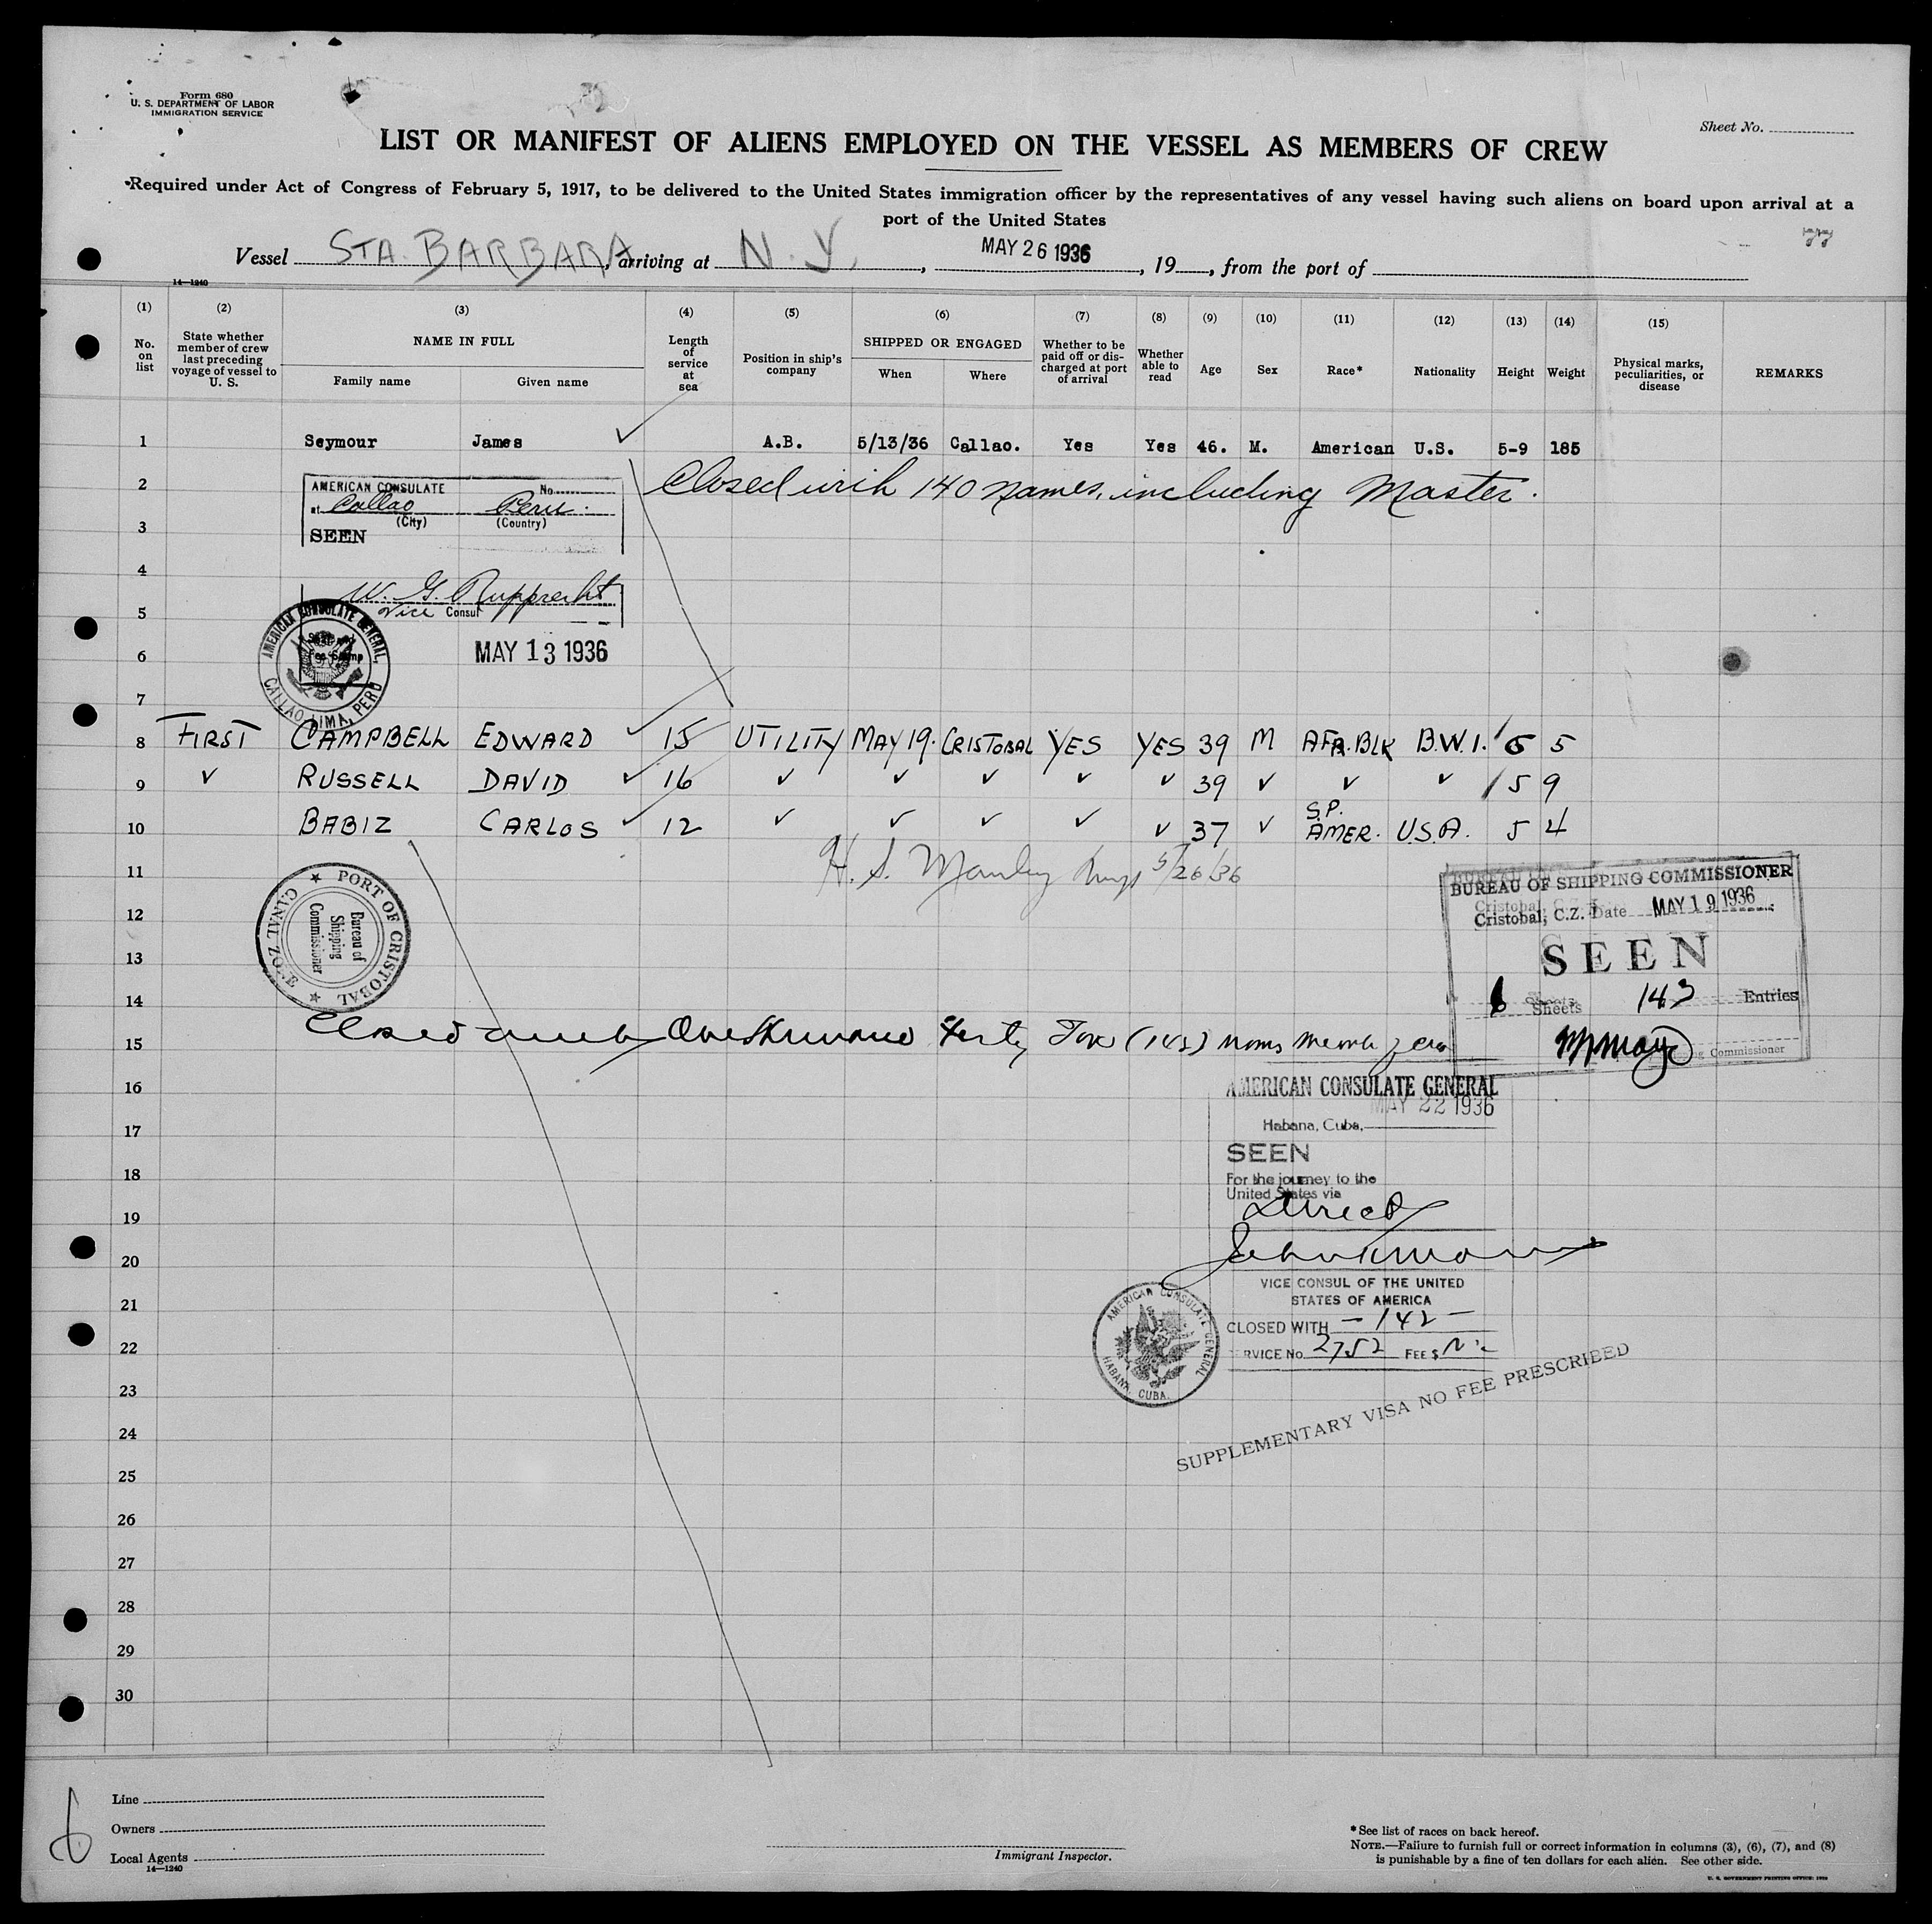 Form 680
U. S. DEPARTMENT OF LABOR
IMMIGRATION SERVICE
Sheet No.
LIST OR MANIFEST OF ALIENS EMPLOYED ON THE VESSEL AS MEMBERS OF CREW
Required under Act of Congress of February 5, 1917, to be delivered to the United States immigration officer by the representatives of any vessel having such aliens on board upon arrival at a
port of the United States
Vessel STA. BARBARA, arriving at N. Y., MAY 26 1936, 19, from the port of
14—1240
(1) (2) (3) (4) (5) (6) (7) (8) (9) (10) (11) (12) (13) (14) (15)
No. on list
State whether member of crew last preceding voyage of vessel to U. S.
NAME IN FULL
Family name
Given name
Length of service at sea
Position in ship's company
SHIPPED OR ENGAGED
When
Where
Whether to be paid off or discharged at port of arrival
Whether able to read
Age
Sex
Race*
Nationality
Height
Weight
Physical marks, peculiarities, or disease
REMARKS
1 Seymour James ✓ A.B. 5/13/36 Callao. Yes Yes 46. M. American U.S. 5-9 185
2 Closed with 140 names, including Master.
AMERICAN CONSULATE No.
at Callao Peru.
(City) (Country)
3
SEEN
4
W. G. Rupprecht
Vice Consul
5
AMERICAN CONSULATE GENERAL,
CALLAO-LIMA, PERU
6 MAY 13 1936
7
8 FIRST CAMPBELL EDWARD ✓ 15 UTILITY MAY 19. CRISTOBAL YES YES 39 M AFR. BLK B.W.I. 5 5
9 ✓ RUSSELL DAVID ✓ 16 ✓ ✓ ✓ ✓ ✓ 39 ✓ ✓ ✓ 5 9
10 BABIZ CARLOS ✓ 12 ✓ ✓ ✓ ✓ ✓ 37 ✓ S.P. AMER. U.S.A. 5 4
11 H. S. Manley 5/26/36
PORT OF CRISTOBAL
CANAL ZONE
Bureau of
Shipping
Commissioner
BUREAU OF SHIPPING COMMISSIONER
Cristobal, C.Z. Date MAY 19 1936
12
SEEN
13
14
6 Sheets 143 Entries
15 Closed
Commissioner
16
AMERICAN CONSULATE GENERAL
MAY 22 1936
Habana, Cuba,
17
SEEN
18
For the journey to the
United States via
Direct
19
20
VICE CONSUL OF THE UNITED
STATES OF AMERICA
21
CLOSED WITH — 142 —
22
SERVICE No. 2752 FEE $
AMERICAN CONSULATE GENERAL
HABANA, CUBA.
SUPPLEMENTARY VISA NO FEE PRESCRIBED
23
24
25
26
27
28
29
30
6
Line
Owners
Local Agents
14—1240
Immigrant Inspector.
*See list of races on back hereof.
NOTE.—Failure to furnish full or correct information in columns (3), (6), (7), and (8)
is punishable by a fine of ten dollars for each alien. See other side.
U. S. GOVERNMENT PRINTING OFFICE: